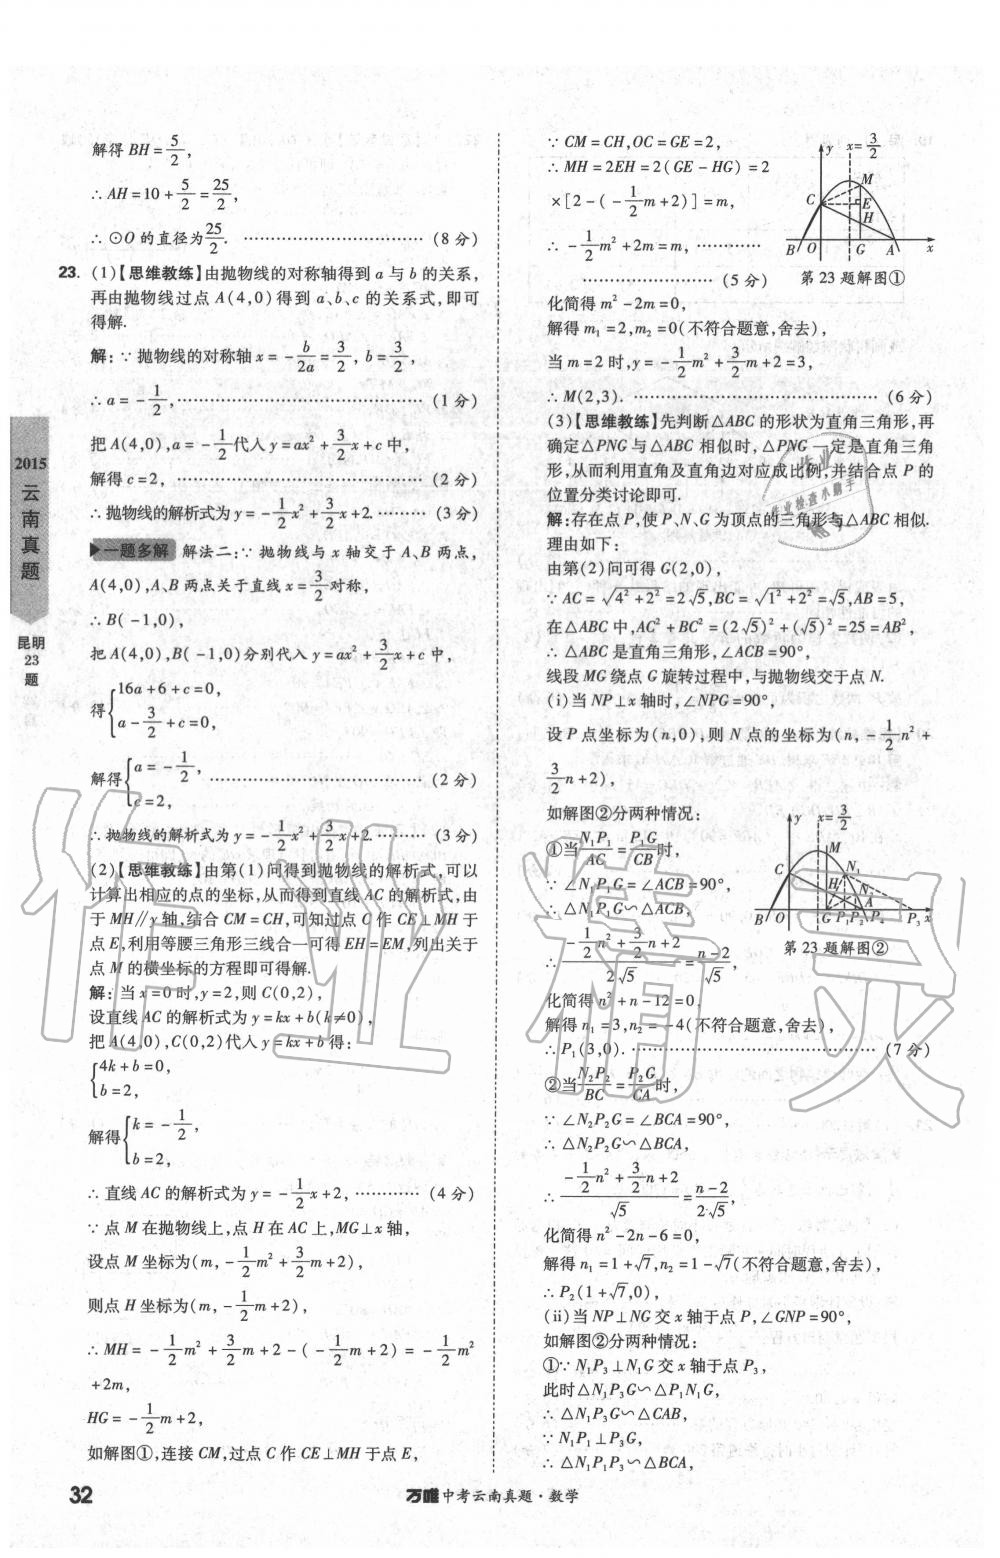 解得 BH = 5/2,
∴ AH = 10 + 5/2 = 25/2,
∴ ⊙O 的直径为 25/2. ……………………………… (8 分)
23. (1)【思维教练】由抛物线的对称轴得到 a 与 b 的关系,
再由抛物线过点 A(4,0)得到 a、b、c 的关系式,即可
得解.
解:∵ 抛物线的对称轴 x = -b/2a = 3/2, b = 3/2,
∴ a = -1/2, ……………………………… (1 分)
把 A(4,0), a = -1/2 代入 y = ax² + 3/2x + c 中,
解得 c = 2, ……………………………… (2 分)
∴ 抛物线的解析式为 y = -1/2x² + 3/2x + 2. ……… (3 分)
一题多解 解法二:∵ 抛物线与 x 轴交于 A、B 两点,
A(4,0),A、B 两点关于直线 x = 3/2 对称,
∴ B(-1,0),
把 A(4,0),B(-1,0)分别代入 y = ax² + 3/2x + c 中,
得{16a + 6 + c = 0,
a - 3/2 + c = 0,
解得{a = -1/2, ……………………………… (2 分)
c = 2,
∴ 抛物线的解析式为 y = -1/2x² + 3/2x + 2. ……… (3 分)
(2)【思维教练】由第(1)问得到抛物线的解析式,可以
计算出相应的点的坐标,从而得到直线 AC 的解析式,由
于 MH∥y 轴,结合 CM = CH,可知过点 C 作 CE⊥MH 于
点 E,利用等腰三角形三线合一可得 EH = EM,列出关于
点 M 的横坐标的方程即可得解.
解:当 x = 0 时,y = 2,则 C(0,2),
设直线 AC 的解析式为 y = kx + b(k≠0),
把 A(4,0),C(0,2)代入 y = kx + b 得:
{4k + b = 0,
b = 2,
解得{k = -1/2,
b = 2,
∴ 直线 AC 的解析式为 y = -1/2x + 2, ………… (4 分)
∵ 点 M 在抛物线上,点 H 在 AC 上,MG⊥x 轴,
设点 M 坐标为(m, -1/2m² + 3/2m + 2),
则点 H 坐标为(m, -1/2m + 2),
∴ MH = -1/2m² + 3/2m + 2 - (-1/2m + 2) = -1/2m²
+ 2m,
HG = -1/2m + 2,
如解图①,连接 CM,过点 C 作 CE⊥MH 于点 E,
∵ CM = CH, OC = GE = 2,
∴ MH = 2EH = 2(GE - HG) = 2
×[2 - (-1/2m + 2)] = m,
∴ -1/2m² + 2m = m, …………
……………………… (5 分)
化简得 m² - 2m = 0,
解得 m₁ = 2, m₂ = 0(不符合题意,舍去),
当 m = 2 时, y = -1/2m² + 3/2m + 2 = 3,
∴ M(2,3). ……………………………… (6 分)
y x = 3/2
C M E H
B O G A x
第 23 题解图①
(3)【思维教练】先判断△ABC 的形状为直角三角形,再
确定△PNG 与△ABC 相似时,△PNG 一定是直角三角
形,从而利用直角及直角边对应成比例,并结合点 P 的
位置分类讨论即可.
解:存在点 P,使 P、N、G 为顶点的三角形与△ABC 相似.
理由如下:
由第(2)问可得 G(2,0),
∵ AC = √(4² + 2²) = 2√5, BC = √(1² + 2²) = √5, AB = 5,
在△ABC 中, AC² + BC² = (2√5)² + (√5)² = 25 = AB²,
∴ △ABC 是直角三角形,∠ACB = 90°,
线段 MG 绕点 G 旋转过程中,与抛物线交于点 N.
(ⅰ)当 NP⊥x 轴时,∠NPG = 90°,
设 P 点坐标为(n,0),则 N 点的坐标为(n, = 1/2n² +
3/2n + 2),
如解图②分两种情况:
①当 N₁P₁/AC = P₁G/CB 时,
∵ ∠N₁P₁G = ∠ACB = 90°,
∴ △N₁P₁G∽△ACB,
∴ (-1/2n² + 3/2n + 2)/(2√5) = (n - 2)/√5,
化简得 n² + n - 12 = 0,
解得 n₁ = 3, n₂ = -4(不符合题意,舍去),
∴ P₁(3,0). ……………………………… (7 分)
y x = 3/2
C M N₁ H N
B O G P₁ P₂ A P₄ P₃ x
第 23 题解图②
②当 N₂P₂/BC = P₂G/CA 时,
∵ ∠N₂P₂G = ∠BCA = 90°,
∴ △N₂P₂G∽△BCA,
∴ (-1/2n² + 3/2n + 2)/√5 = (n - 2)/(2√5)
化简得 n² - 2n - 6 = 0,
解得 n₁ = 1 + √7, n₂ = 1 - √7(不符合题意,舍去),
∴ P₂(1 + √7,0),
(ⅱ)当 NP⊥NG 交 x 轴于点 P,∠GNP = 90°,
如解图②分两种情况:
①∵ N₁P₃⊥N₁G 交 x 轴于点 P₃,
此时△N₁P₃G∽△P₁N₁G,
∴ △N₁P₃G∽△CAB,
∵ N₁P₁⊥P₃G,
∴ △N₁P₁P₃∽△BCA,
2015
云南真题
昆明
23
题
32
万唯中考云南真题·数学
作业精灵
作业
作业检查小助手